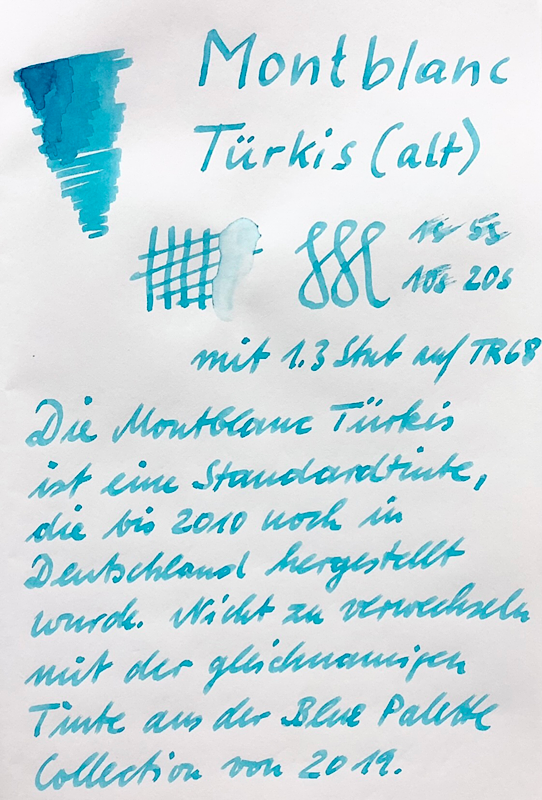 Montblanc
Türkis (alt)
1s 5s
10s 20s
mit 1.3 Stub auf TR68
Die Montblanc Türkis
ist eine Standardtinte,
die bis 2010 noch in
Deutschland hergestellt
wurde. Nicht zu verwechseln
mit der gleichnamigen
Tinte aus der Blue Palette
Collection von 2019.